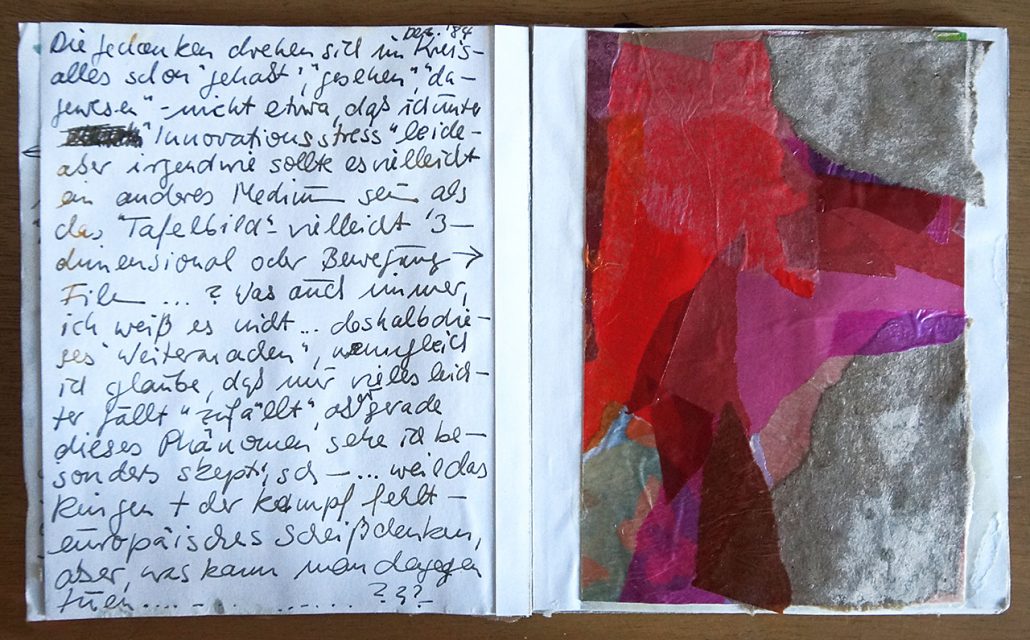 Dez. '84
Die Gedanken drehen sich im Kreis -
alles schon "gehabt", "gesehen", "da-
gewesen" - nicht etwa, daß ich unter
"Innovationsstress" leide -
aber irgendwie sollte es vielleicht
ein anderes Medium sein als
das "Tafelbild" - vielleicht 3-
dimensional oder Bewegung →
Film ... ? Was auch immer,
ich weiß es nicht ... deshalb die-
ses "Weitermachen", wenngleich
ich glaube, daß mir vieles leich-
ter fällt "zufällt", aber grade
dieses Phänomen sehe ich be-
sonders skeptisch - ... weil das
Ringen + der Kampf fehlt -
europäisches Scheißdenken,
aber, was kann man dagegen
tuen .... - . ... . . ...... ???